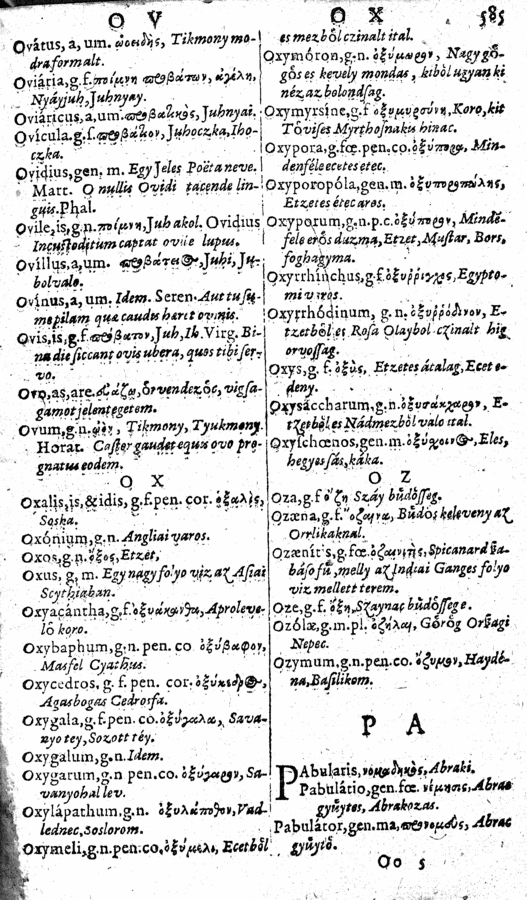 O V
O X
585
Ovatus, a, um. ὠοειδὴς, Tikmony mo-
dra formalt.
Oviária, g.f. ποίμνη προβάτων, ἀγέλη,
Nyáyjuh, Juhnyay.
Oviaricus, a, um. προβατικὸς, Juhnyai.
Ovícula. g.f. προβάτιον, Juhoczka, Iho-
czka.
Ovidius, gen. m. Egy Jeles Poëta neve.
Mart. O nullis Ovidi tacende lin-
guis. Phal.
Ovile, is, g.n. ποίμνη, Juh akol. Ovidius
Incustoditum captat ovile lupus.
Ovíllus, a, um. Juhi, Ju-
hol valo.
Ovínus, a, um. Idem. Seren. Aut tu su-
me pilam qua caudis hæret ovinis.
Ovis, is, g.f. πρόβατον, Juh, Ih. Virg. Bi-
na die siccant ovis ubera, quos tibi ser-
vo.
Ovo, as, are. örvendezöc, vigsa-
gamot jelentegetem.
Ovum, g.n. ὠὸν, Tikmony, Tyukmony
Horat. Castor gaudet equis ovo pro-
gnatus eodem.
O X
Oxalis, is, & idis, g.f. pen. cor. ὀξαλὶς,
Soska.
Oxónium, g.n. Angliai varos.
Oxos, g.n. ὄξος, Etzet,
Oxus, g. m. Egy nagy folyo viz az Asiai
Scythiaban.
Oxyacántha, g.f. ὀξυάκανθα, Aprole ve-
lö koro.
Oxybaphum, g.n. pen. co ὀξύβαφον,
Masfel Cyathus.
Oxycedros, g. f. pen. cor. ὀξύκεδρος,
Agasbogas Cedrosfa.
Oxygala, g.f. pen. co. ὀξύγαλα, Sava-
nyo tey, Sozott téy.
Oxygalum, g.n. Idem.
Oxygarum, g.n pen. co. ὀξύγαρον, Sa-
vanyo hal lev.
Oxylápathum, g.n. ὀξυλάπαθον, Vad
lednec, soslorom.
Oxymeli, g.n. pen. co. ὀξύμελι, Ecetböl
es mezböl czinalt ital.
Oxymóron, g.n. ὀξύμωρον, Nagy gö-
gös es kevely mondas, kiböl ugyan ki
néz az bolondsag.
Oxymyrsíne, g.f ὀξυμυρσίνη, Koro, kit
Tövises Myrthosnakis hinac.
Oxypora, g.fœ. pen. co. ὀξύπορα, Min-
denféle ecetes etec.
Oxyporopóla, gen. m. ὀξυποροπώλης,
Etzetes étec aros.
Oxyporum, g.n. p.c. ὀξύπορον, Minde-
fele erös duzma, Etzet, Mustar, Bors,
foghagyma.
Oxyrrhínchus, g.f. ὀξύρρυγχος, Egypto-
mi varos.
Oxyrrhódinum, g. n. ὀξυρρόδινον, E-
tzetböl es Rosa Olaybol czinalt hig
orvossag.
Oxys, g. f. ὀξὺς, Etzetes átalag, Ecet e-
deny.
Oxysáccharum, g.n. ὀξυσάκχαρον, E-
tzetböl es Nádmezböl valo ital.
Oxyschœnos, gen. m. ὀξύσχοινος, Eles,
hegyes sás, káka.
O Z
Oza, g.f ὄζη Száy büdösseg.
Ozæna, g.f. ὄζαινα, Büdös keleveny az
Orrlikaknal.
Ozænítis, g.fœ. ὀζαινίτης, Spicanard sa-
báso fü, melly az Indiai Ganges folyo
viz mellett terem.
Oze, g.f. ὄζη, Szaynac büdössege.
Ozólæ, g.m. pl. ὀζόλαι, Görög Orsagi
Nepec.
Ozymum, g.n. pen. co. ὄζυμον, Haydé-
na, Basilikom.
P A
PAbularis, νομαδικὸς, Abraki.
Pabulátio, gen. fœ. νέμησις, Abrac
gyüytes, Abrakozas.
Pabulátor, gen. ma, Abrac
gyüytö.
Oo 5